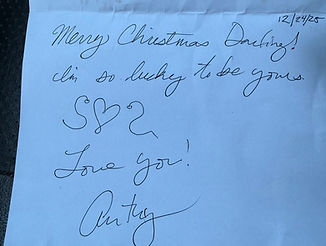 12/24/25
Merry Christmas Darling!
I'm so lucky to be yours.
S♡S
Love you!